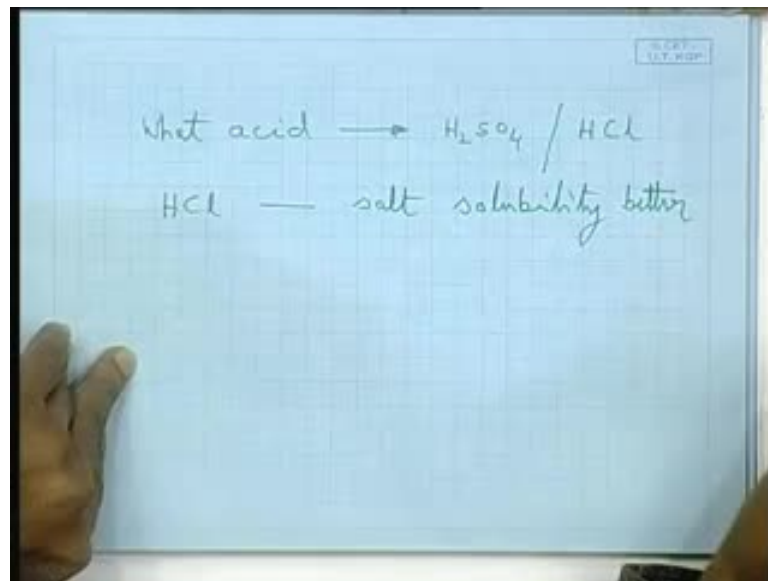 I.I.T. KGP
What acid → H₂SO₄ / HCl
HCl — salt solubility better